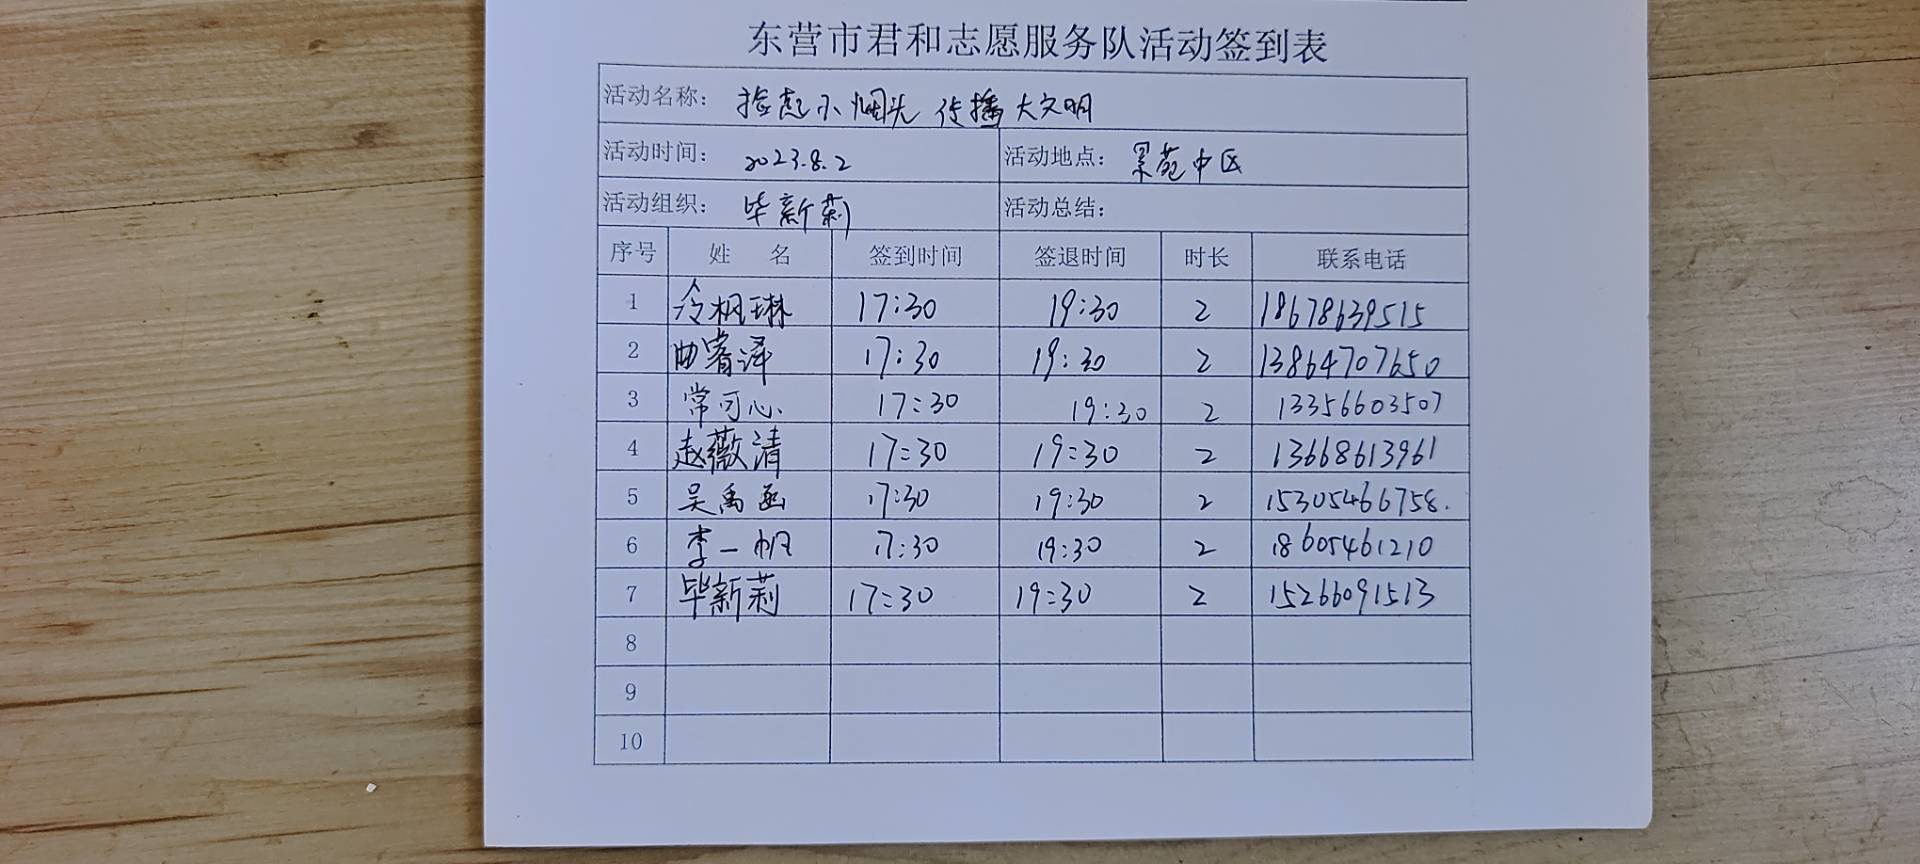 东营市君和志愿服务队活动签到表
活动名称： 捡起小烟头 传播大文明
活动时间： 2023.8.2 活动地点： 景苑中区
活动组织： 毕新莉 活动总结：
序号 姓 名 签到时间 签退时间 时长 联系电话
1 冷枫琳 17:30 19:30 2 18678639515
2 曲睿泽 17:30 19:30 2 13864707650
3 常可心 17:30 19:30 2 13356603507
4 赵薇清 17:30 19:30 2 13668613961
5 吴禹函 17:30 19:30 2 15305466758.
6 李一帆 17:30 19:30 2 18605461210
7 毕新莉 17:30 19:30 2 15266091513
8
9
10